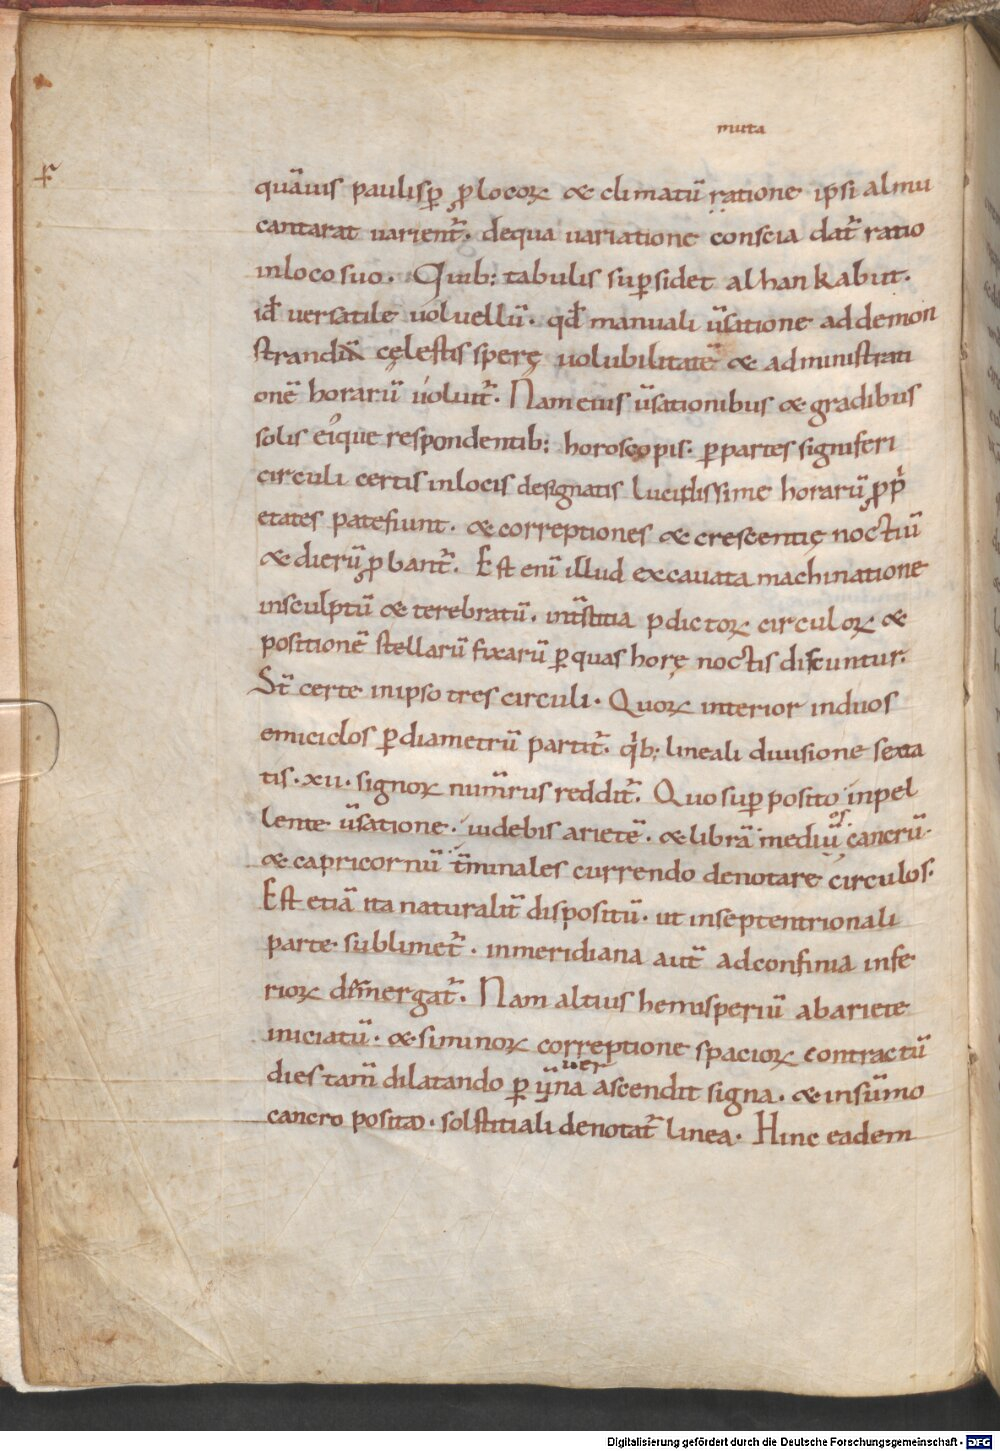 muta
quãuis paulisꝑ ꝓlocoꝝ & climatũ ratione ipsi almu
cantarat uarient̃. dequa uariatione conscia dat̃ ratio
inloco suo. Quib; tabulis suꝑsidet alhankabut.
id̃ uersatile uoluellũ. qd̃ manuali ũsatione addemon
strandũ cęlestis sperę uolubilitatẽ & administrati
onẽ horarũ uoluit̃. Nam eius ũsationibus & gradibus
solis eique respondentib; horoscopis. ꝑ partes signiferi
circuli certis inlocis designatis lucidissime horarũ ꝓpͥ
etates patefiunt. & correptiones & crescentię noctiũ
& dierũ ꝓbant̃. Est enĩ illud excauata machinatione
insculptũ & terebratũ. int̃stitia p̄dictoꝝ circuloꝝ &
positionẽ stellarũ fixarũ ꝑ quas horę noctis discuntur.
St̃ certe inipso tres circuli. Quoꝝ interior induos
emiciclos ꝑ diametrũ partit̃. qͥb; lineali diuisione sexta
tis. xii. signoꝝ num̃rus reddit̃. Quo suꝑ posito inpel
lente ũsatione. uidebis arietẽ. & librã mediũ os cancrũ.
& capricornũ t̃minales currendo denotare circulos.
Est etiã ita naturalit̃ dispositũ. ut inseptentrionali
parte sublimet̃. inmeridiana aut̃ adconfinia infe
rioꝝ dimergat̃. Nam altius hemisperiũ abariete
iniciatũ. & siminoꝝ correptione spacioꝝ contractũ
dies tam̃ dilatando ꝑ ascendit signa. & insũmo
cancro posito. solstitiali denotat̃ linea. Hinc eadem
Digitalisierung gefördert durch die Deutsche Forschungsgemeinschaft - DFG